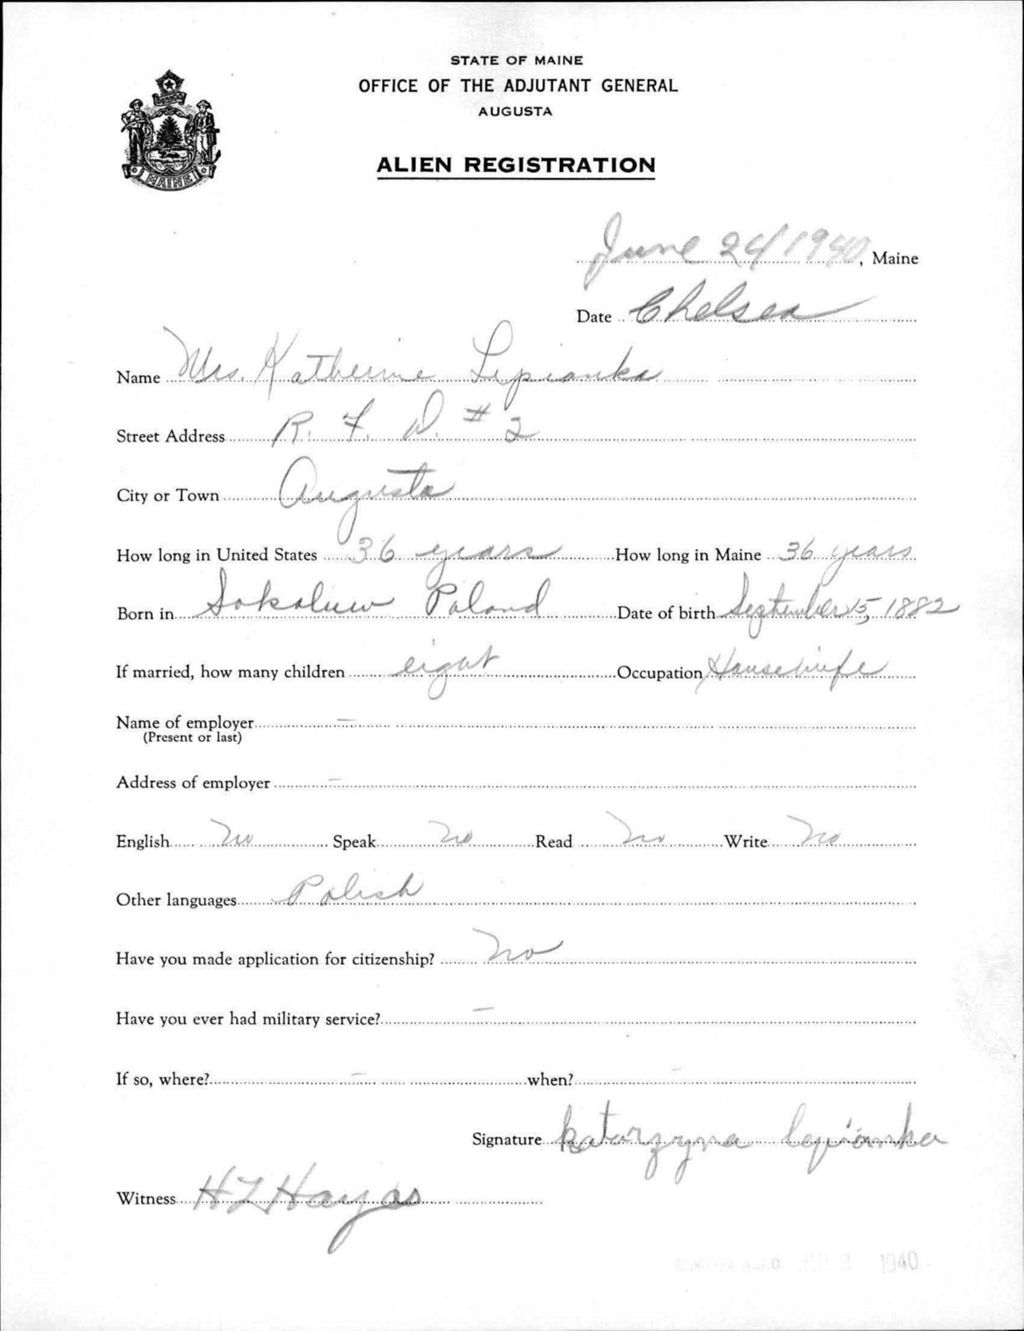 STATE OF MAINE
OFFICE OF THE ADJUTANT GENERAL
AUGUSTA
MAINE
ALIEN REGISTRATION
June 24/1940, Maine
Date Chelsea
Name Mrs. Katherine Lepianka
Street Address R. F. D. #2
City or Town Augusta
How long in United States 36 years How long in Maine 36 years
Born in Sokaluw Poland Date of birth September 15, 1882
If married, how many children eight Occupation Housewife
Name of employer –
(Present or last)
Address of employer –
English No Speak No Read No Write No
Other languages Polish
Have you made application for citizenship? No
Have you ever had military service? –
If so, where? – when? –
Signature Katarzyna Lepianka
Witness H L Hayas
1940